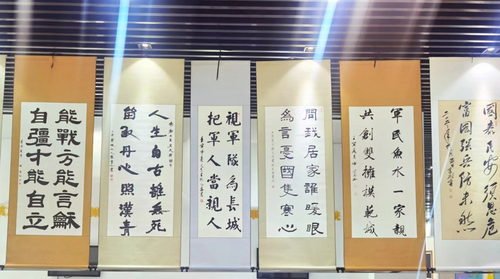 能戰方能言龢
自彊才能自立
人生自古誰無死
留取丹心照漢青
視軍隊為長城
把軍人當親人
問我居家誰暖眼
為言憂國隻寒心
軍民魚水一家親
共創雙擁模範城
國泰民安須思危
富國強兵防未然